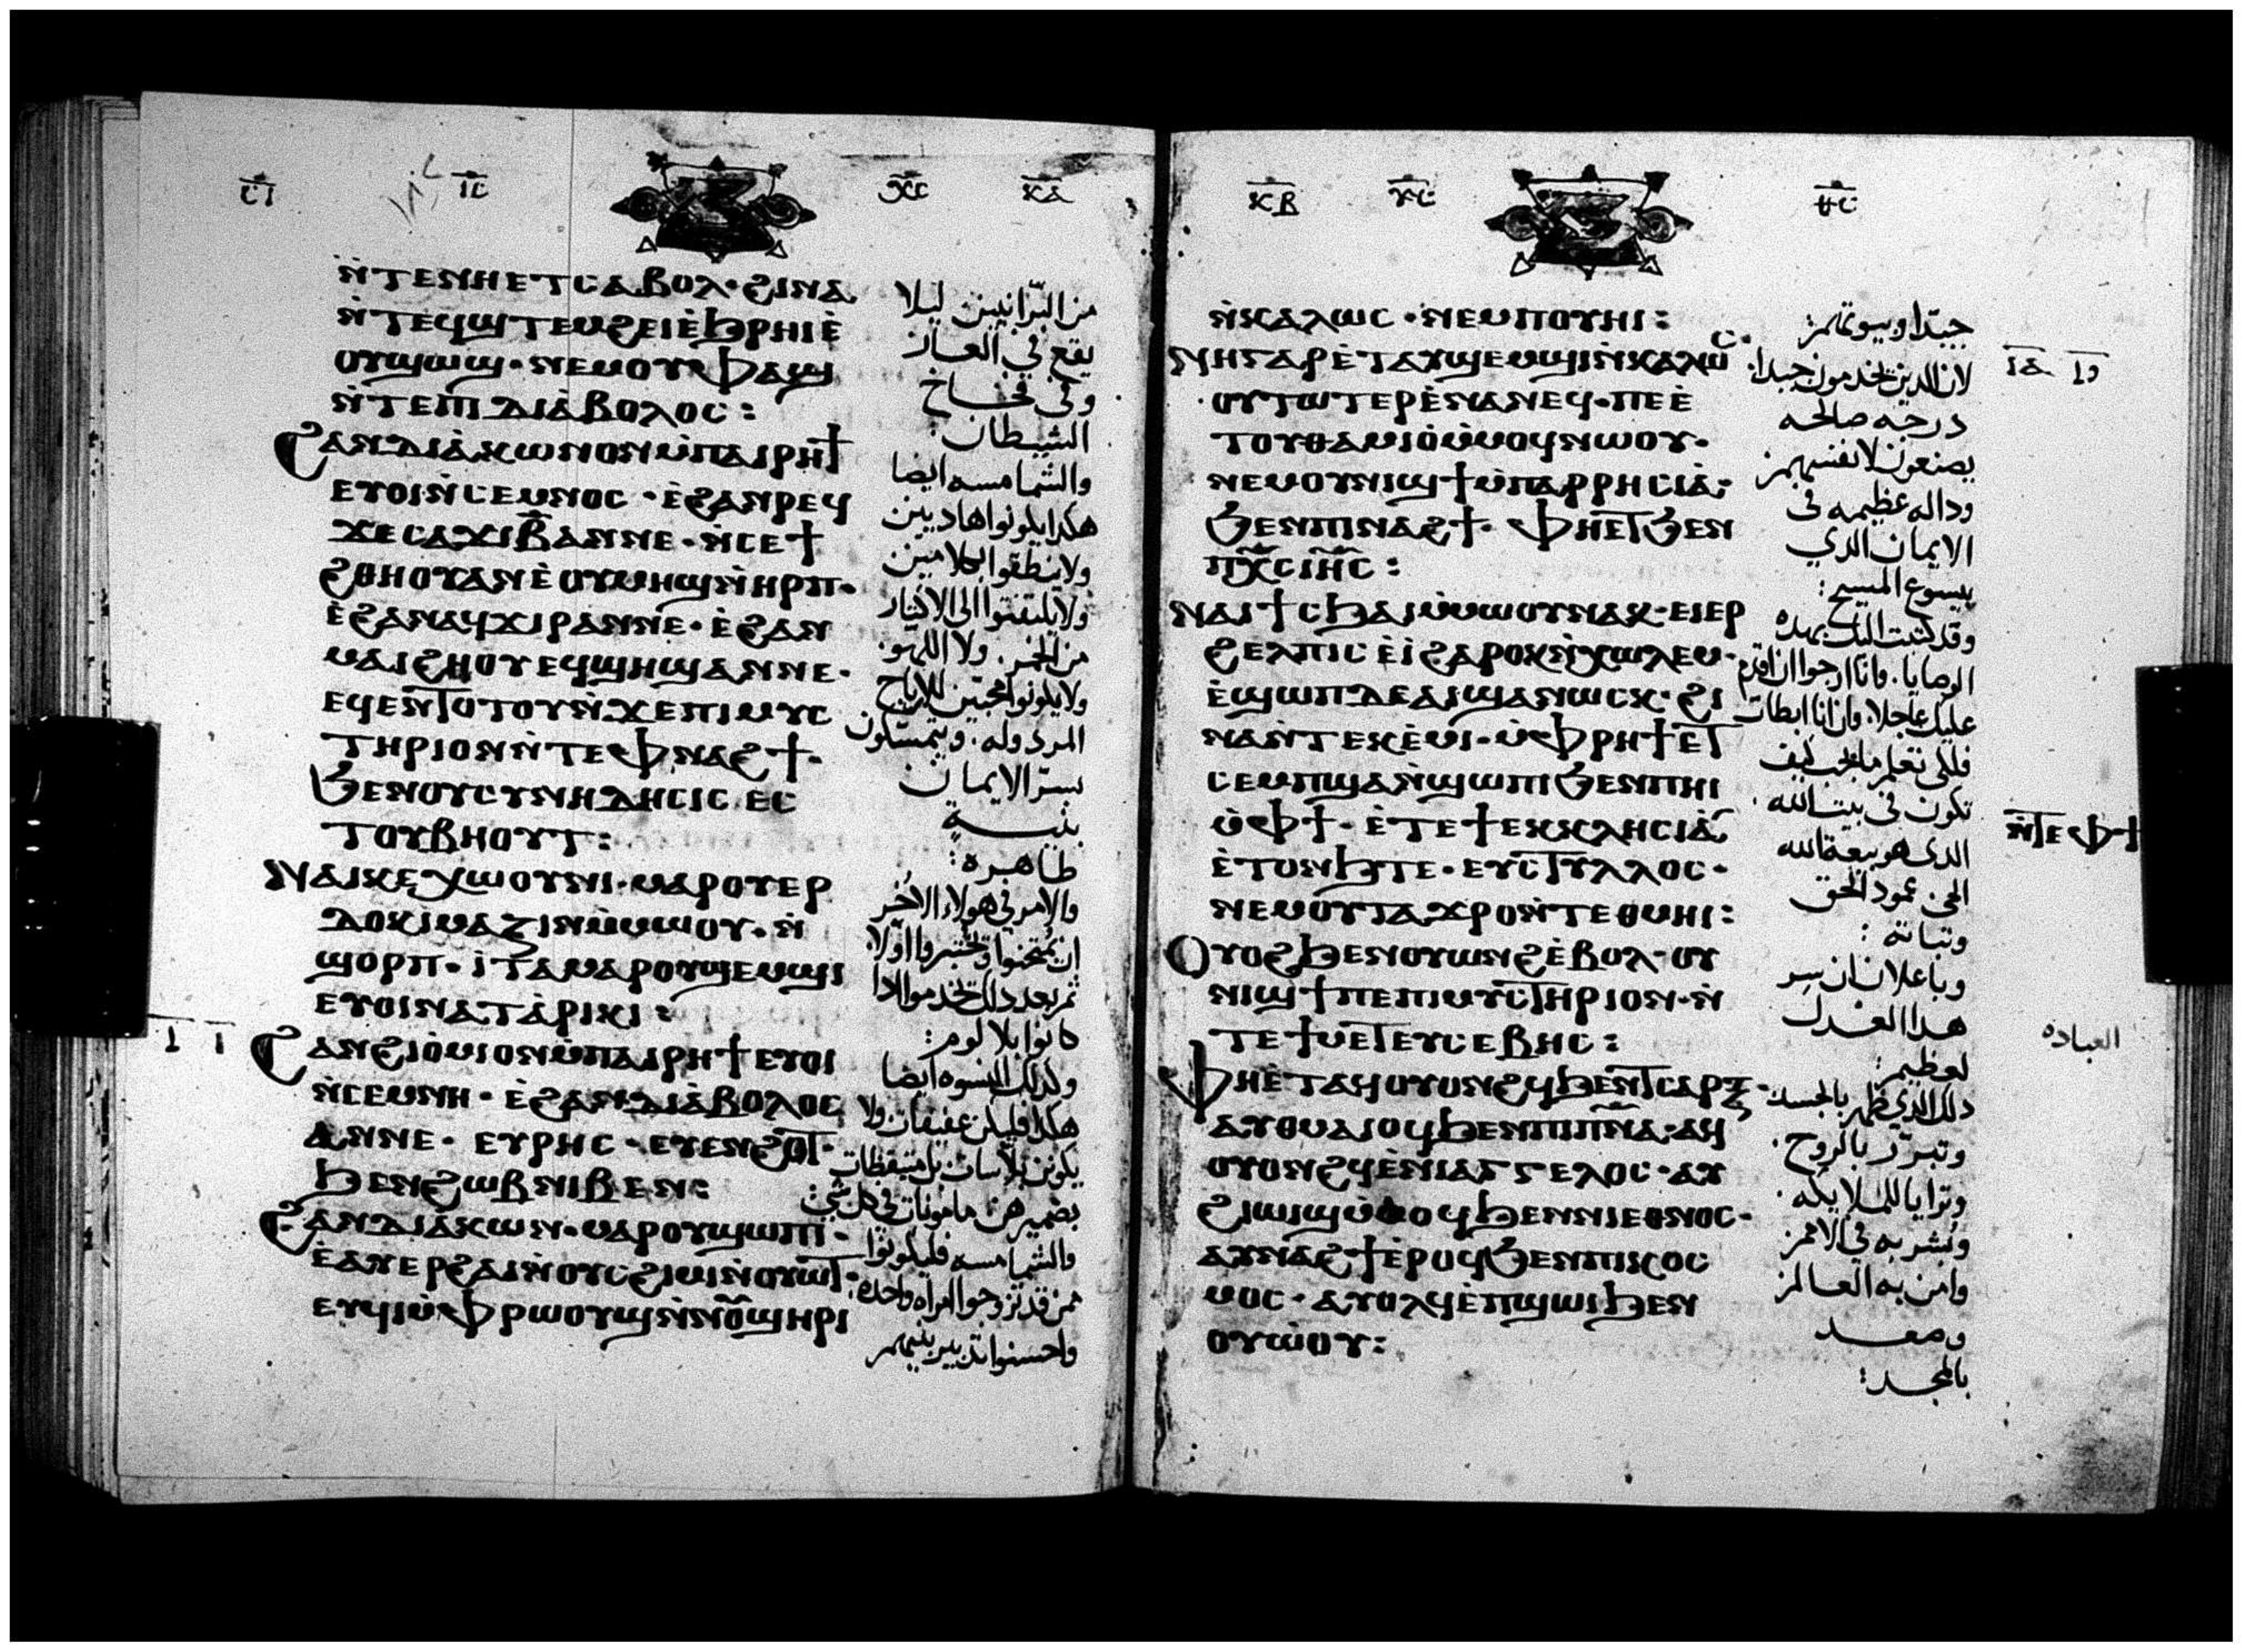 ⲓⲥ
ⲭⲥ
ⲕⲁ
ⲛ̀ⲧⲉⲛⲏⲉⲧⲥⲁⲃⲟⲗ· ϩⲓⲛⲁ
ⲛ̀ⲧⲉϥϣⲧⲉⲙϩⲉⲓⲉ̀ϧⲣⲏⲓⲉ̀
ⲟⲩϣⲱϣ· ⲛⲉⲙⲟⲩⲫⲁϣ
ⲛ̀ⲧⲉⲡⲓⲇⲓⲁ̀ⲃⲟⲗⲟⲥ:
ϩⲁⲛⲇⲓⲁ̀ⲕⲱⲛⲟⲛⲙ̀ⲡⲁⲓⲣⲏϯ
ⲉⲩⲟⲓⲛ̀ⲥⲉⲙⲛⲟⲥ· ⲉ̀ϩⲁⲛⲣⲉϥ
ϫⲉⲥⲁϫⲓⲃ̅ⲁⲛⲛⲉ· ⲛ̀ⲥⲉϯ
ϩⲑⲏⲟⲩⲁⲛⲉ̀ⲟⲩⲙⲏϣⲛ̀ⲏⲣⲡ·
ⲉ̀ϩⲁⲛⲁϥϫⲓⲣⲁⲛⲛⲉ· ⲉ̀ϩⲁⲛ
ⲙⲁⲓϩⲏⲟⲩⲉϥϣⲏϣⲁⲛⲛⲉ·
ⲉϥⲉⲛⲧⲟⲧⲟⲩⲛ̀ϫⲉⲡⲓⲙⲩⲥ
ⲧⲏⲣⲓⲟⲛⲛ̀ⲧⲉⲫⲛⲁϩϯ·
ϧⲉⲛⲟⲩⲥⲩⲛⲏⲇⲏⲥⲓⲥ ⲉⲥ
ⲧⲟⲩⲃⲏⲟⲩⲧ:
ⲛⲁⲓⲕⲉⲭⲱⲟⲩⲛⲓ· ⲙⲁⲣⲟⲩⲉⲣ
ⲇⲟⲕⲓⲙⲁⲍⲓⲛⲙ̀ⲙⲱⲟⲩ· ⲛ̀
ϣⲟⲣⲡ· ⲓ̀ⲧⲁⲙⲁⲣⲟⲩϣⲉⲙϣⲓ
ⲉⲩⲟⲓⲛⲁⲧⲁ̀ⲣⲓⲕⲓ:
ϩⲁⲛϩⲓⲟ̀ⲙⲓⲟⲛⲙ̀ⲡⲁⲓⲣⲏϯⲉⲩⲟⲓ
ⲛ̀ⲥⲉⲙⲛⲏ· ⲉ̀ϩⲁⲛⲇⲓⲁ̀ⲃⲟⲗⲟⲥ
ⲁⲛⲛⲉ· ⲉⲩⲣⲏⲥ· ⲉⲩⲉⲛϩⲟⲧ·
ϧⲉⲛϩⲱⲃⲛⲓⲃⲉⲛ:
ϩⲁⲛⲇⲓⲁⲕⲱⲛ· ⲙⲁⲣⲟⲩϣⲱⲡⲓ·
ⲉ̀ⲁⲩⲉⲣϩⲁⲓⲛ̀ⲟⲩⲥϩⲓⲙⲓⲛ̀ⲟⲩⲱⲧ·
ⲉⲩϥⲓⲙ̀ⲫⲣⲱⲟⲩϣⲛ̀ⲛⲟⲩϣⲏⲣⲓ
من البرانيين ليلا
يقع في العار
وفي فخاخ
الشيطان:
والشمامسه ايضا
هكذا يكونوا هاديين
ولا ينطقوا بكلامين
ولا يلتفتوا الى الاكثار
من الخمر. ولا اللهو.
ولا يكونوا محبين للارباح
المردوله. ويتمسكون
بسر الايمان
بنيــة
طاهره:
والامر في هولاء الاخر
ان يمتحنوا وتختبروا اولا
ثم بعد دلك تخدموا ادا
كانوا بلا لوم:
وكدلك النسوه ايضا
هكدا فليكن عفيفات ولا
يكونن بلاسات بل متيقظات
بضميرهن مامونات في كل شي:
والشمامسه فليكونوا
ممن قد تزوجوا امراه واحده:
واحسنوا تدبير بنيهم
ⲕⲃ
ⲩⲥ
ⲑⲥ
ⲛ̀ⲕⲁⲗⲱⲥ· ⲛⲉⲙⲡⲟⲩⲏⲓ:
ⲛⲏⲅⲁⲣⲉ̀ⲧⲁⲩϣⲉⲙϣⲓⲛ̀ⲕⲁⲗⲱⲥ·
ⲟⲩⲧⲱⲧⲉⲣⲉ̀ⲛⲁⲛⲉϥ· ⲡⲉⲉ̀
ⲧⲟⲩⲑⲁⲙⲓⲟ̀ⲙ̀ⲙⲟϥⲛⲱⲟⲩ·
ⲛⲉⲙⲟⲩⲛⲓϣϯⲙ̀ⲡⲁⲣⲣⲏⲥⲓⲁ̀:
ϧⲉⲛⲡⲓⲛⲁϩϯ· ⲫⲏⲉⲧϧⲉⲛ
ⲡⲭ̅ⲥ̅ⲓⲏ̅ⲥ̅:
ⲛⲁⲓϯⲥϧⲁⲓⲙ̀ⲙⲱⲟⲩⲛⲁⲕ· ⲉⲓⲉⲣ
ϩⲉⲗⲡⲓⲥ ⲉ̀ⲓ̀ϩⲁⲣⲟⲕⲛ̀ⲭⲱⲗⲉⲙ·
ⲉ̀ϣⲱⲡⲇⲉⲁⲓϣⲁⲛⲱⲥⲕ· ϩⲓ
ⲛⲁⲛ̀ⲧⲉⲕⲉ̀ⲙⲓ· ⲙ̀ⲫⲣⲏϯⲉⲧ
ⲥⲉⲙⲡϣⲁⲛ̀ϣⲱⲡⲓϧⲉⲛⲡⲏⲓ
ⲙ̀ⲫϯ· ⲉ̀ⲧⲉϯⲉⲕⲕⲗⲏⲥⲓⲁ̀
ⲉ̀ⲧⲟⲛϧⲧⲉ· ⲉⲩⲥⲧⲩⲗⲗⲟⲥ·
ⲛⲉⲙⲟⲩⲧⲁϫⲣⲟⲛ̀ⲧⲉⲑⲙⲏⲓ:
ⲟⲩⲟϩϧⲉⲛⲟⲩⲱⲛϩⲉ̀ⲃⲟⲗ· ⲟⲩ
ⲛⲓϣϯⲡⲉⲡⲓⲙⲩⲥⲧⲏⲣⲓⲟⲛ· ⲛ̀
ⲧⲉϯⲙⲉⲧⲉⲩⲥⲉⲃⲏⲥ:
ⲫⲏⲉ̀ⲧⲁϥⲟⲩⲟⲛϩϥϧⲉⲛⲧⲥⲁⲣⲝ·
ⲁⲩⲑⲙⲁⲓⲟϥϧⲉⲛⲡⲓⲡⲛ̅ⲁ̅· ⲁϥ
ⲟⲩⲟⲛϩϥⲉ̀ⲛⲓⲁⲅⲅⲉⲗⲟⲥ· ⲁⲩ
ϩⲓⲱⲓϣⲙ̀ⲙⲟϥϧⲉⲛⲛⲓⲉⲑⲛⲟⲥ·
ⲁⲩⲛⲁϩϯⲉ̀ⲣⲟϥϧⲉⲛⲡⲓⲕⲟⲥ
ⲙⲟⲥ· ⲁⲩⲟⲗϥⲉ̀ⲡϣⲱⲓϧⲉⲛ
ⲟⲩⲱ̀ⲟⲩ:
جيدا وبيوتهم:
لان الدين يخدمون جيدا.
درجه صالحه
يصنعون لانفسهم
وداله عظيمه في
الايمان الدي
بيسوع المسيح:
وقد كتبت اليك بهده
الوصايا. وانا ارجوا ان اقدم
عليك عاجلا. وان انا ابطات
فلكي تعلم ما يجب كيف
تكون في بيت الله.
الدى هو بيعة الله
الحى عمود الحق
وتباته:
وباعلان ان سر
هدا العدل
لعظيم:
دلك الدي ظهر بالجسد.
وتبرر بالروح.
وترايا للملايكه.
وبشر به في الامم
وامن به العالم
وصعــد
بالمجــد:
ⲓⲁ
ⲛ̀ⲧⲉⲫϯ
العباده